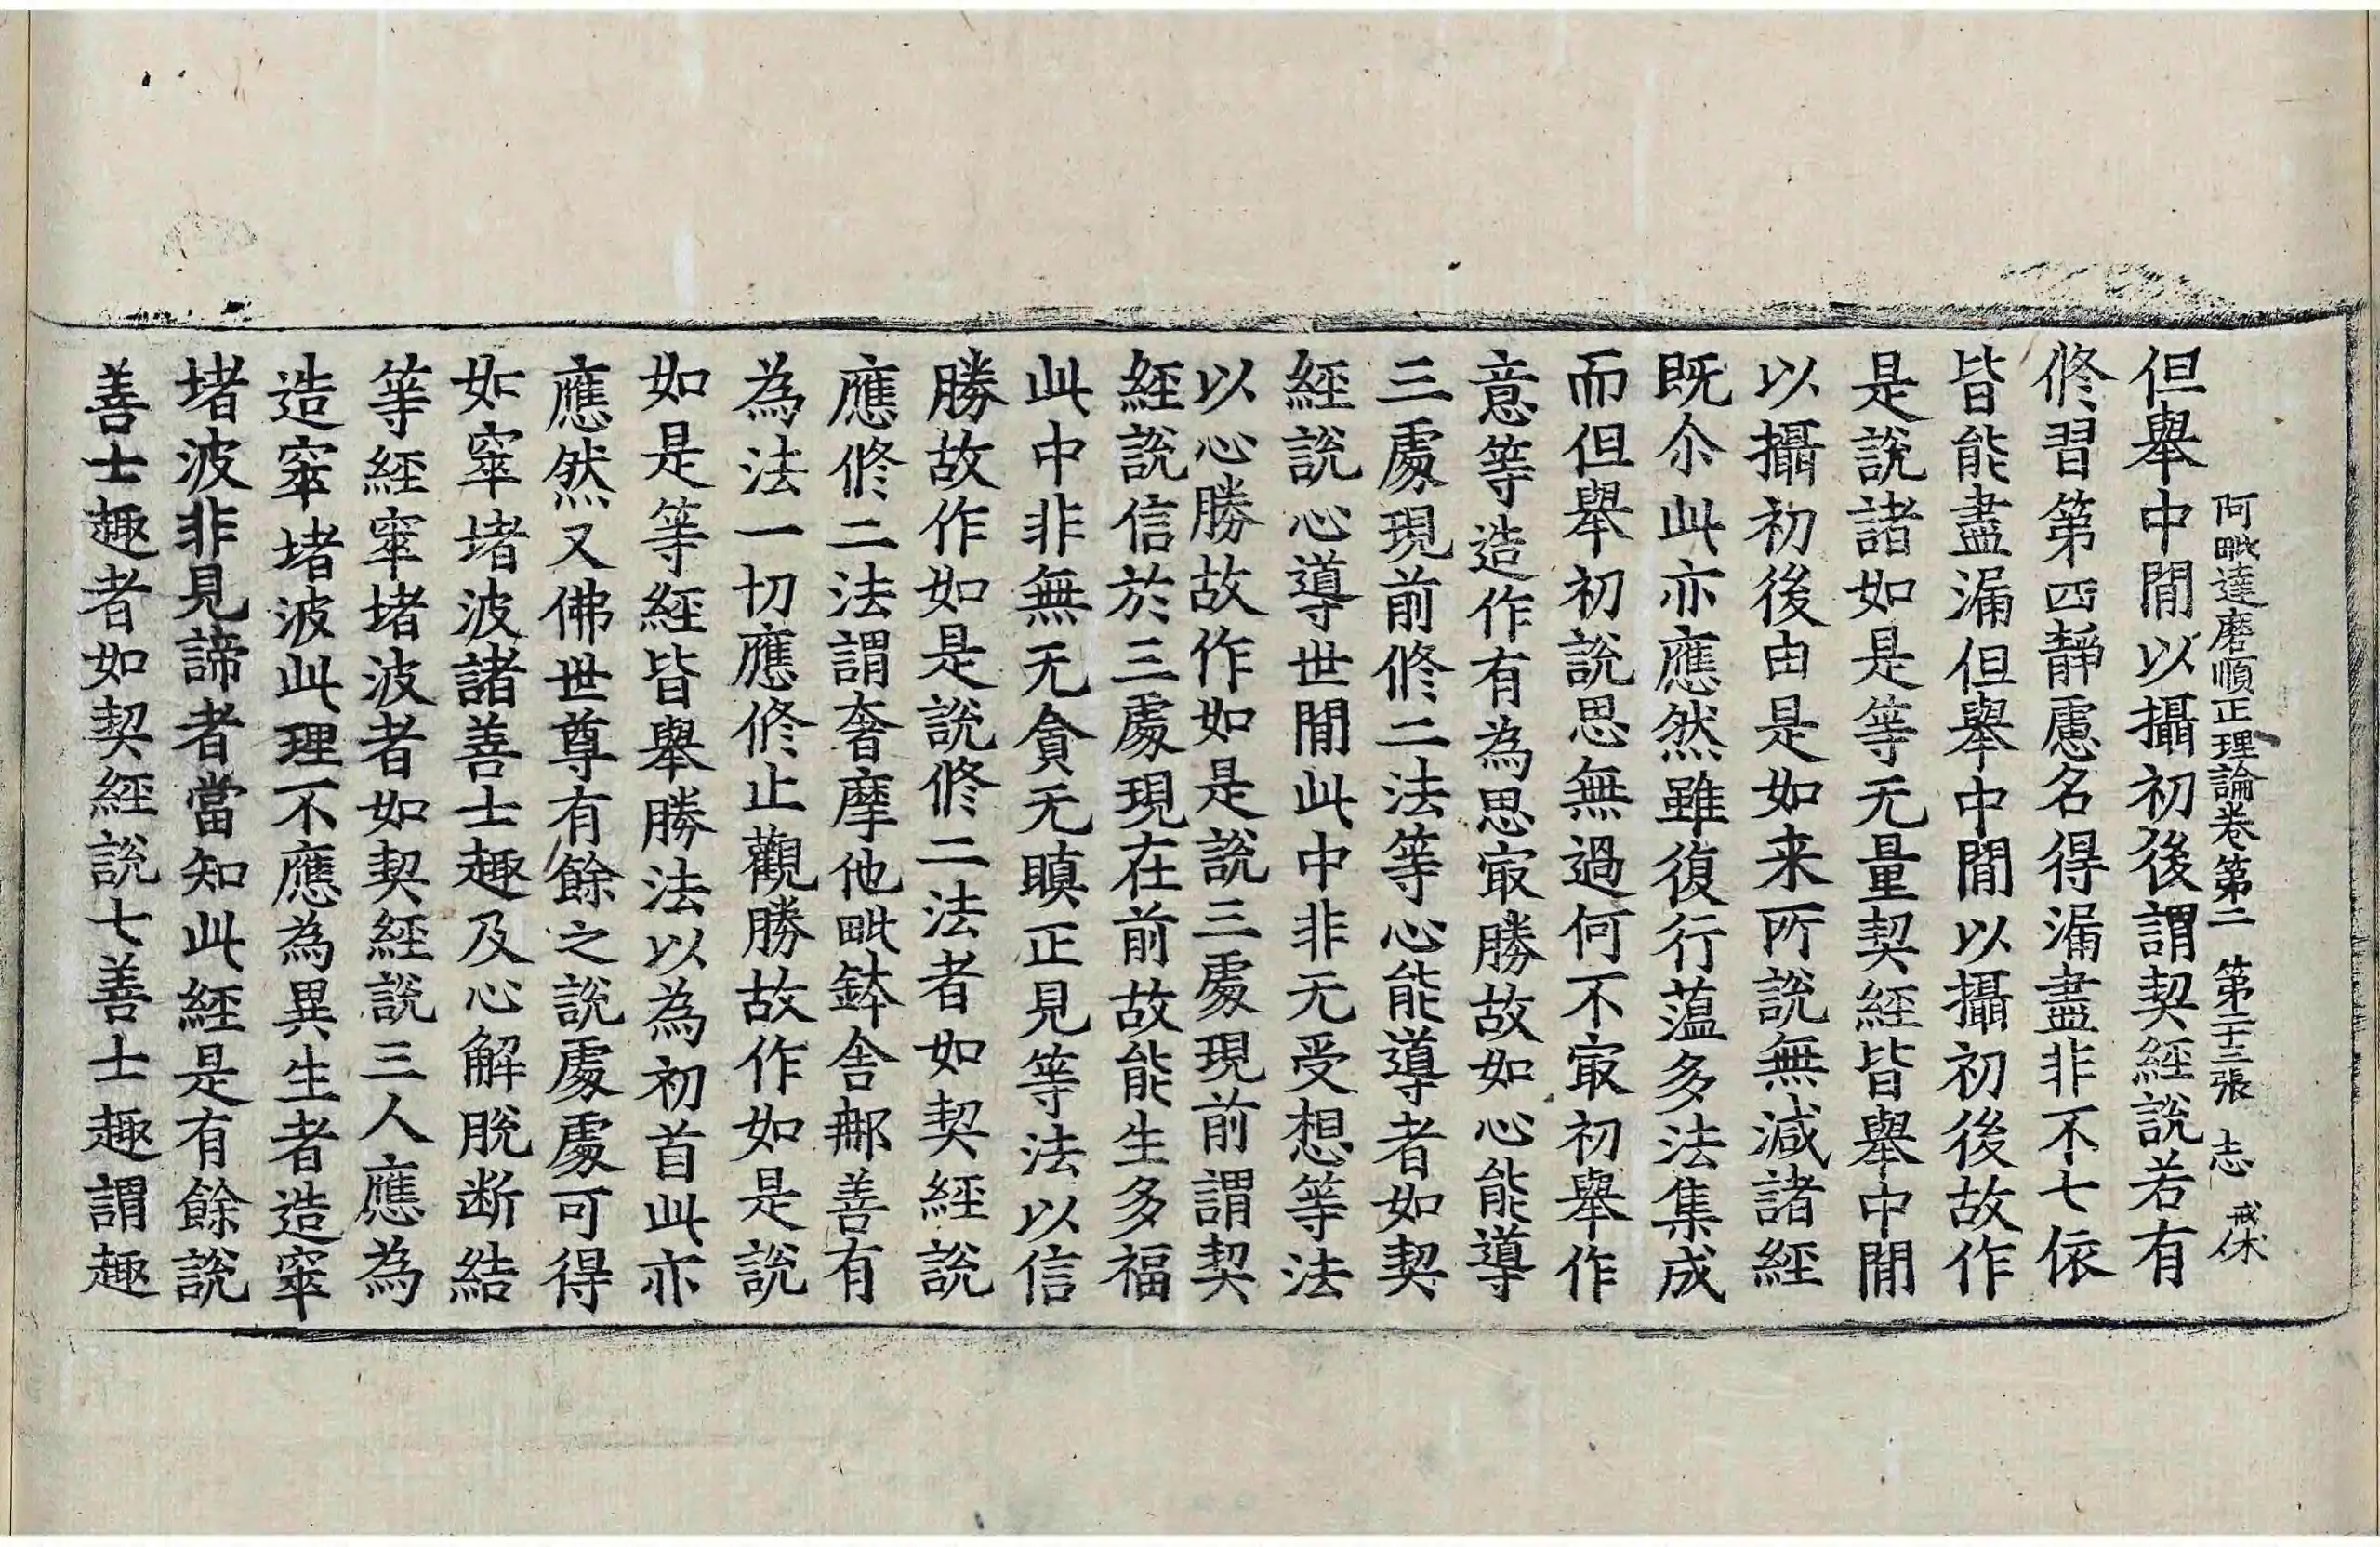 阿毗達磨順正理論卷第二 第二十二張 志 戒休
但舉中閒以攝初後謂契經說若有
修習第四靜慮名得漏盡非不七依
皆能盡漏但舉中閒以攝初後故作
是說諸如是等无量契經皆舉中閒
以攝初後由是如来所說無減諸經
既尒此亦應然雖復行蘊多法集成
而但舉初說思無過何不㝡初舉作
意等造作有為思㝡勝故如心能導
三處現前修二法等心能導者如契
經說心導世閒此中非无受想等法
以心勝故作如是說三處現前謂契
經說信於三處現在前故能生多福
此中非無无貪无瞋正見等法以信
勝故作如是說修二法者如契經說
應修二法謂奢摩他毗鉢舍那善有
為法一切應修止觀勝故作如是說
如是等經皆舉勝法以為初首此亦
應然又佛世尊有餘之說處處可得
如窣堵波諸善士趣及心解脫断結
等經窣堵波者如契經說三人應為
造窣堵波此理不應為異生者造窣
堵波非見諦者當知此經是有餘說
善士趣者如契經說七善士趣謂趣